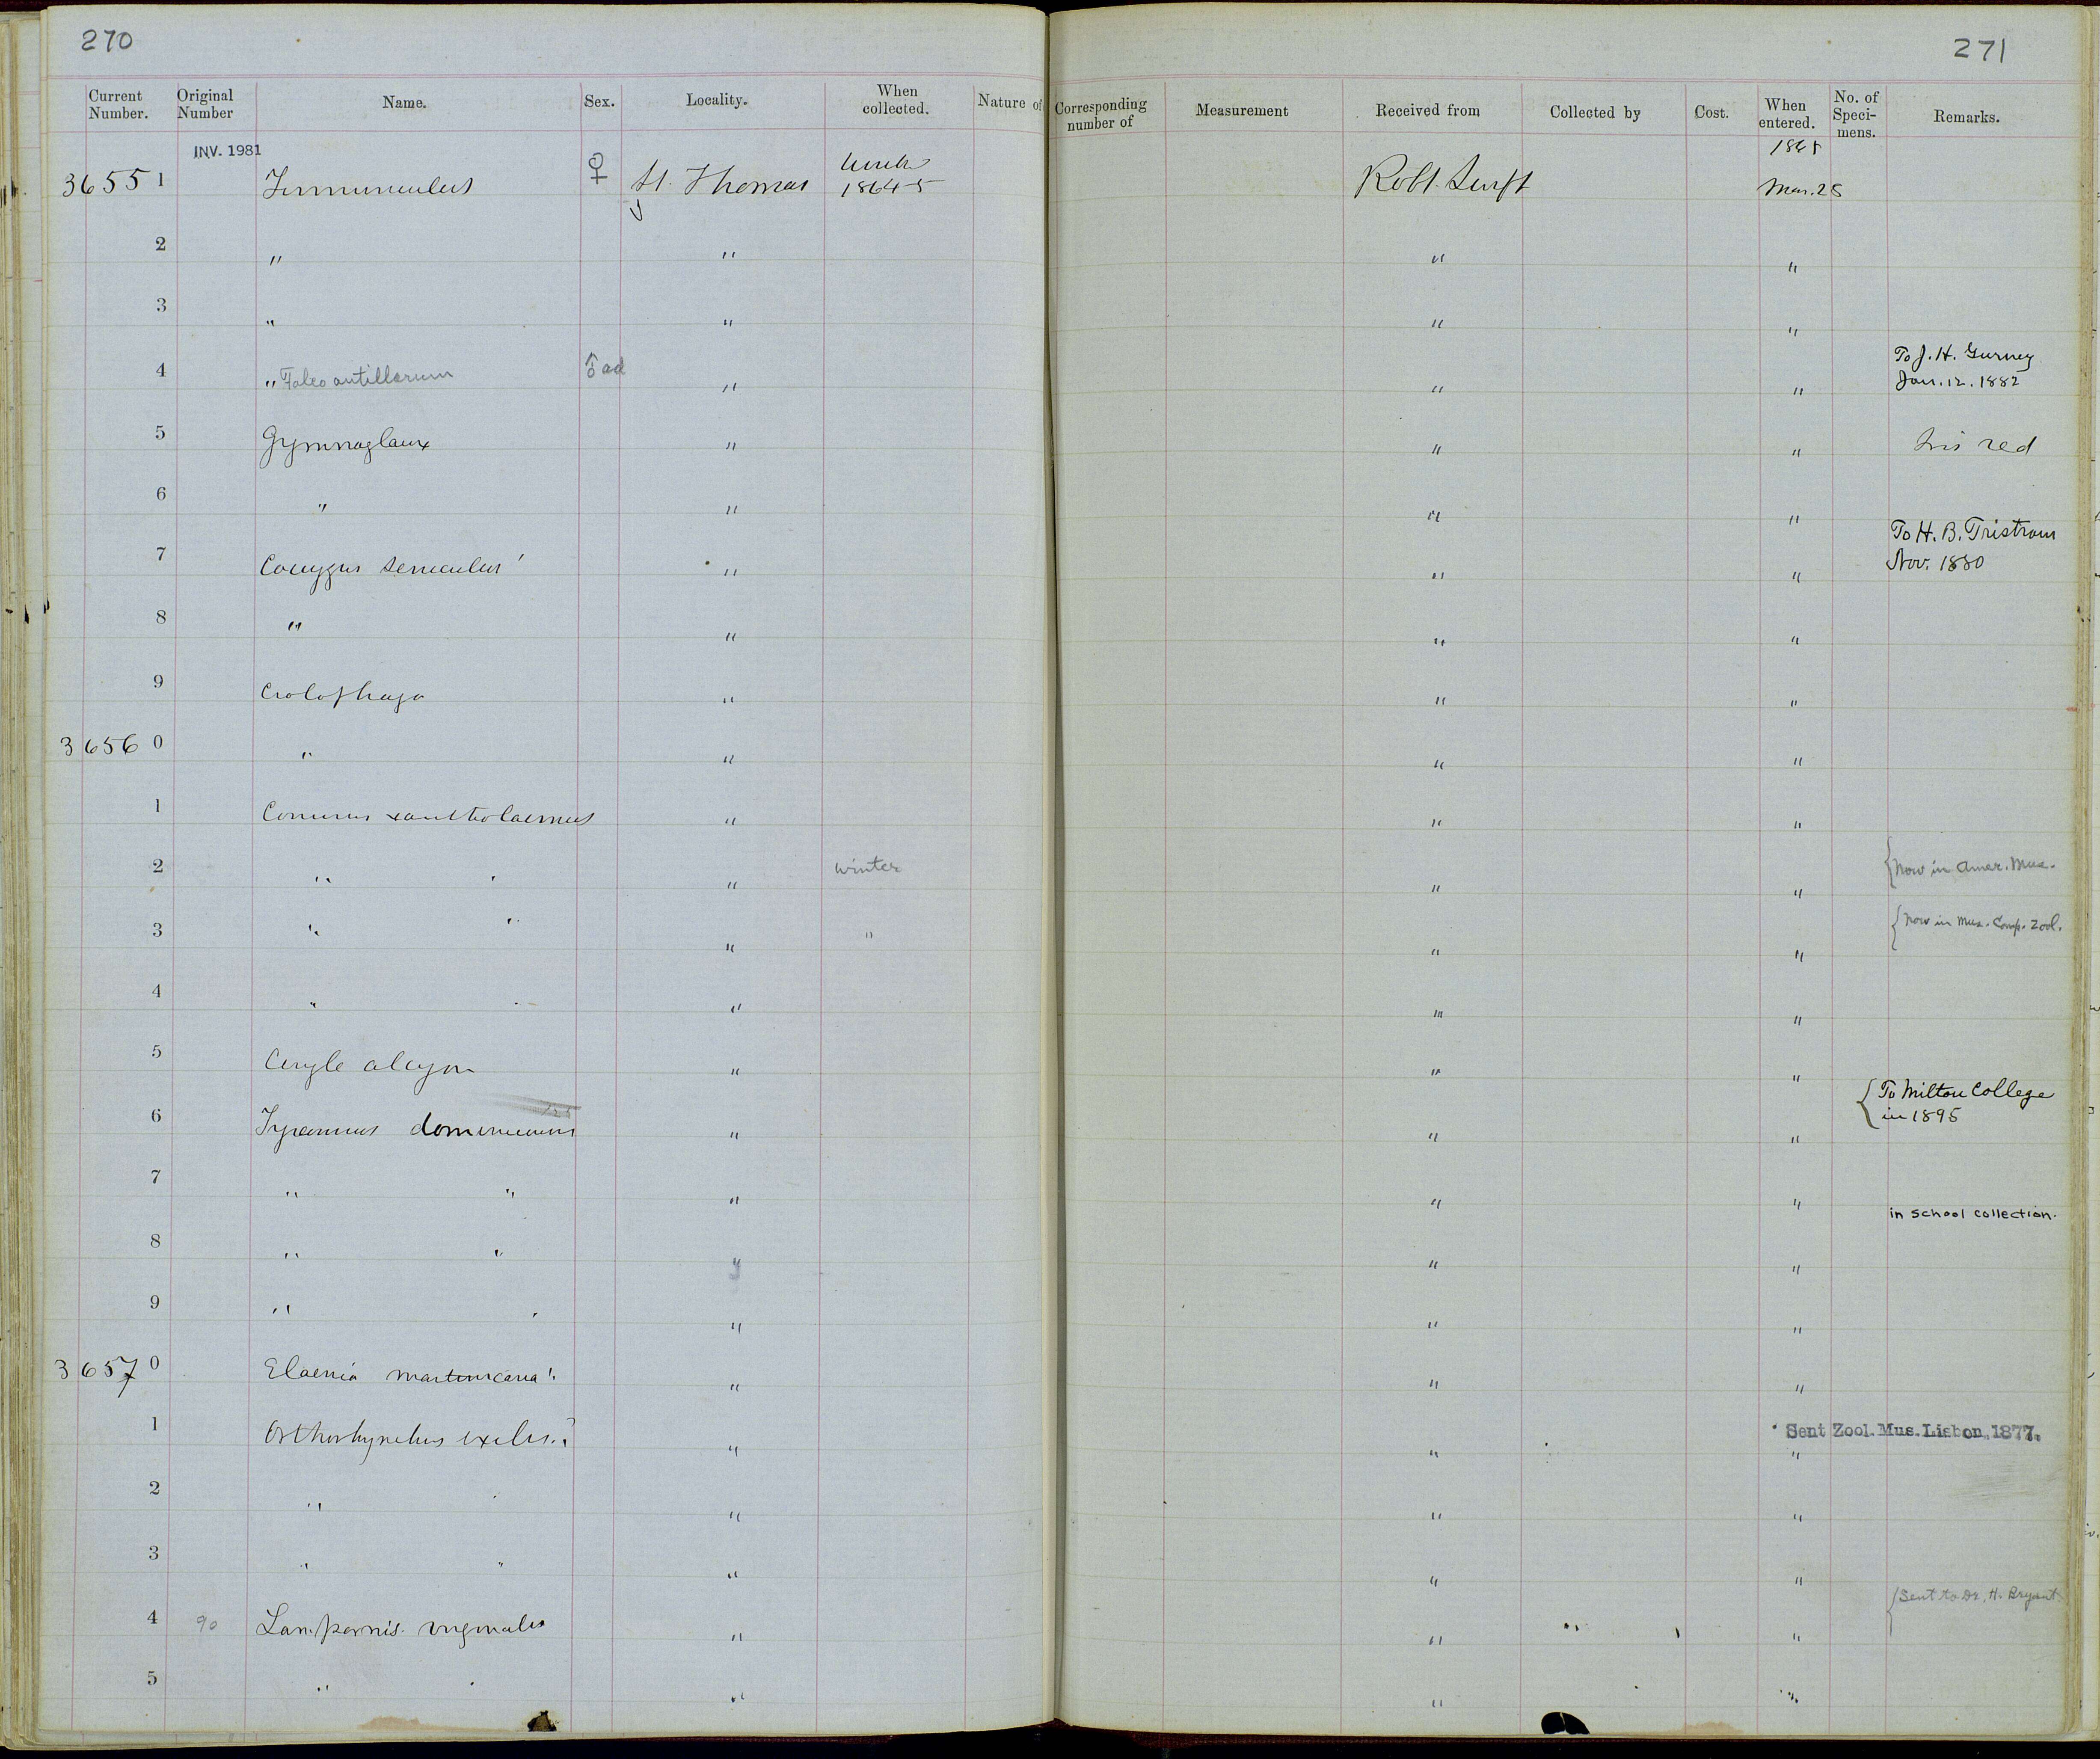 270
271
Current Number. Original Number Name. Sex. Locality. When collected. Nature of Corresponding number of Measurement Received from Collected by Cost. When entered. No. of Speci- mens. Remarks.
INV. 1981
36551 Tinnunculus ♀ St. Thomas 1864-5 Robt. Swift 1865 Mar. 28
2 " " " "
3 " " " "
4 " Falco antillarum ♂ ad " " " To J. H. Gurney Jan. 12. 1882
5 Gymnoglaux " " " Iris red
6 " " " "
7 Coccyzus seniculus " " " To H. B. Tristram Nov. 1880
8 " " " "
9 Crotophaga " " "
36560 " " " "
1 Conurus xantholaemus " " "
2 " " " winter " " {Now in Amer. Mus.
3 " " " " " " {Now in Mus. Comp. Zool.
4 " " " " "
5 Ceryle alcyon " " "
6 Tyrannus dominicensis " " " {To Milton College in 1895
7 " " " " " in school collection.
8 " " " " "
9 " " " " "
36570 Elaenia martinicana " " "
1 Orthorhynchus exilis.? " " " Sent Zool. Mus. Lisbon, 1877.
2 " " " " "
3 " " " " "
4 90 Lampornis virginalis " " " {Sent to Dr. H. Bryant.
5 " " " " "